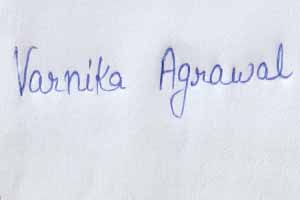 Varnika Agrawal